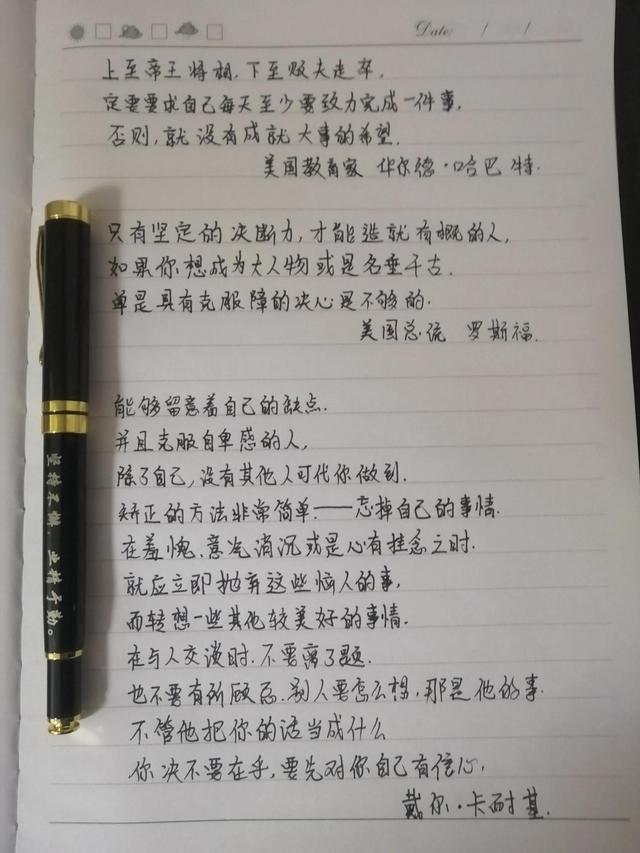 Date: / /
上至帝王将相,下至贩夫走卒,
定要要求自己每天至少要致力完成一件事,
否则,就没有成就大事的希望.
美国教育家 华尔德·哈巴特.
只有坚定的决断力,才能造就有概的人,
如果你想成为大人物或是名垂千古.
单是具有克服障的决心是不够的.
美国总统 罗斯福.
能够留意着自己的缺点.
并且克服自卑感的人,
除了自己,没有其他人可代你做到.
矫正的方法非常简单.——忘掉自己的事情.
在羞愧、意气消沉或是心有挂念之时.
就应立即抛弃这些恼人的事,
而转想一些其他较美好的事情.
在与人交谈时.不要离了题.
也不要有所顾忌.别人要怎么想,那是他的事.
不管他把你的话当成什么
你决不要在乎,要先对你自己有信心,
戴尔·卡耐基.
坚持柔懒. 业精于勤。